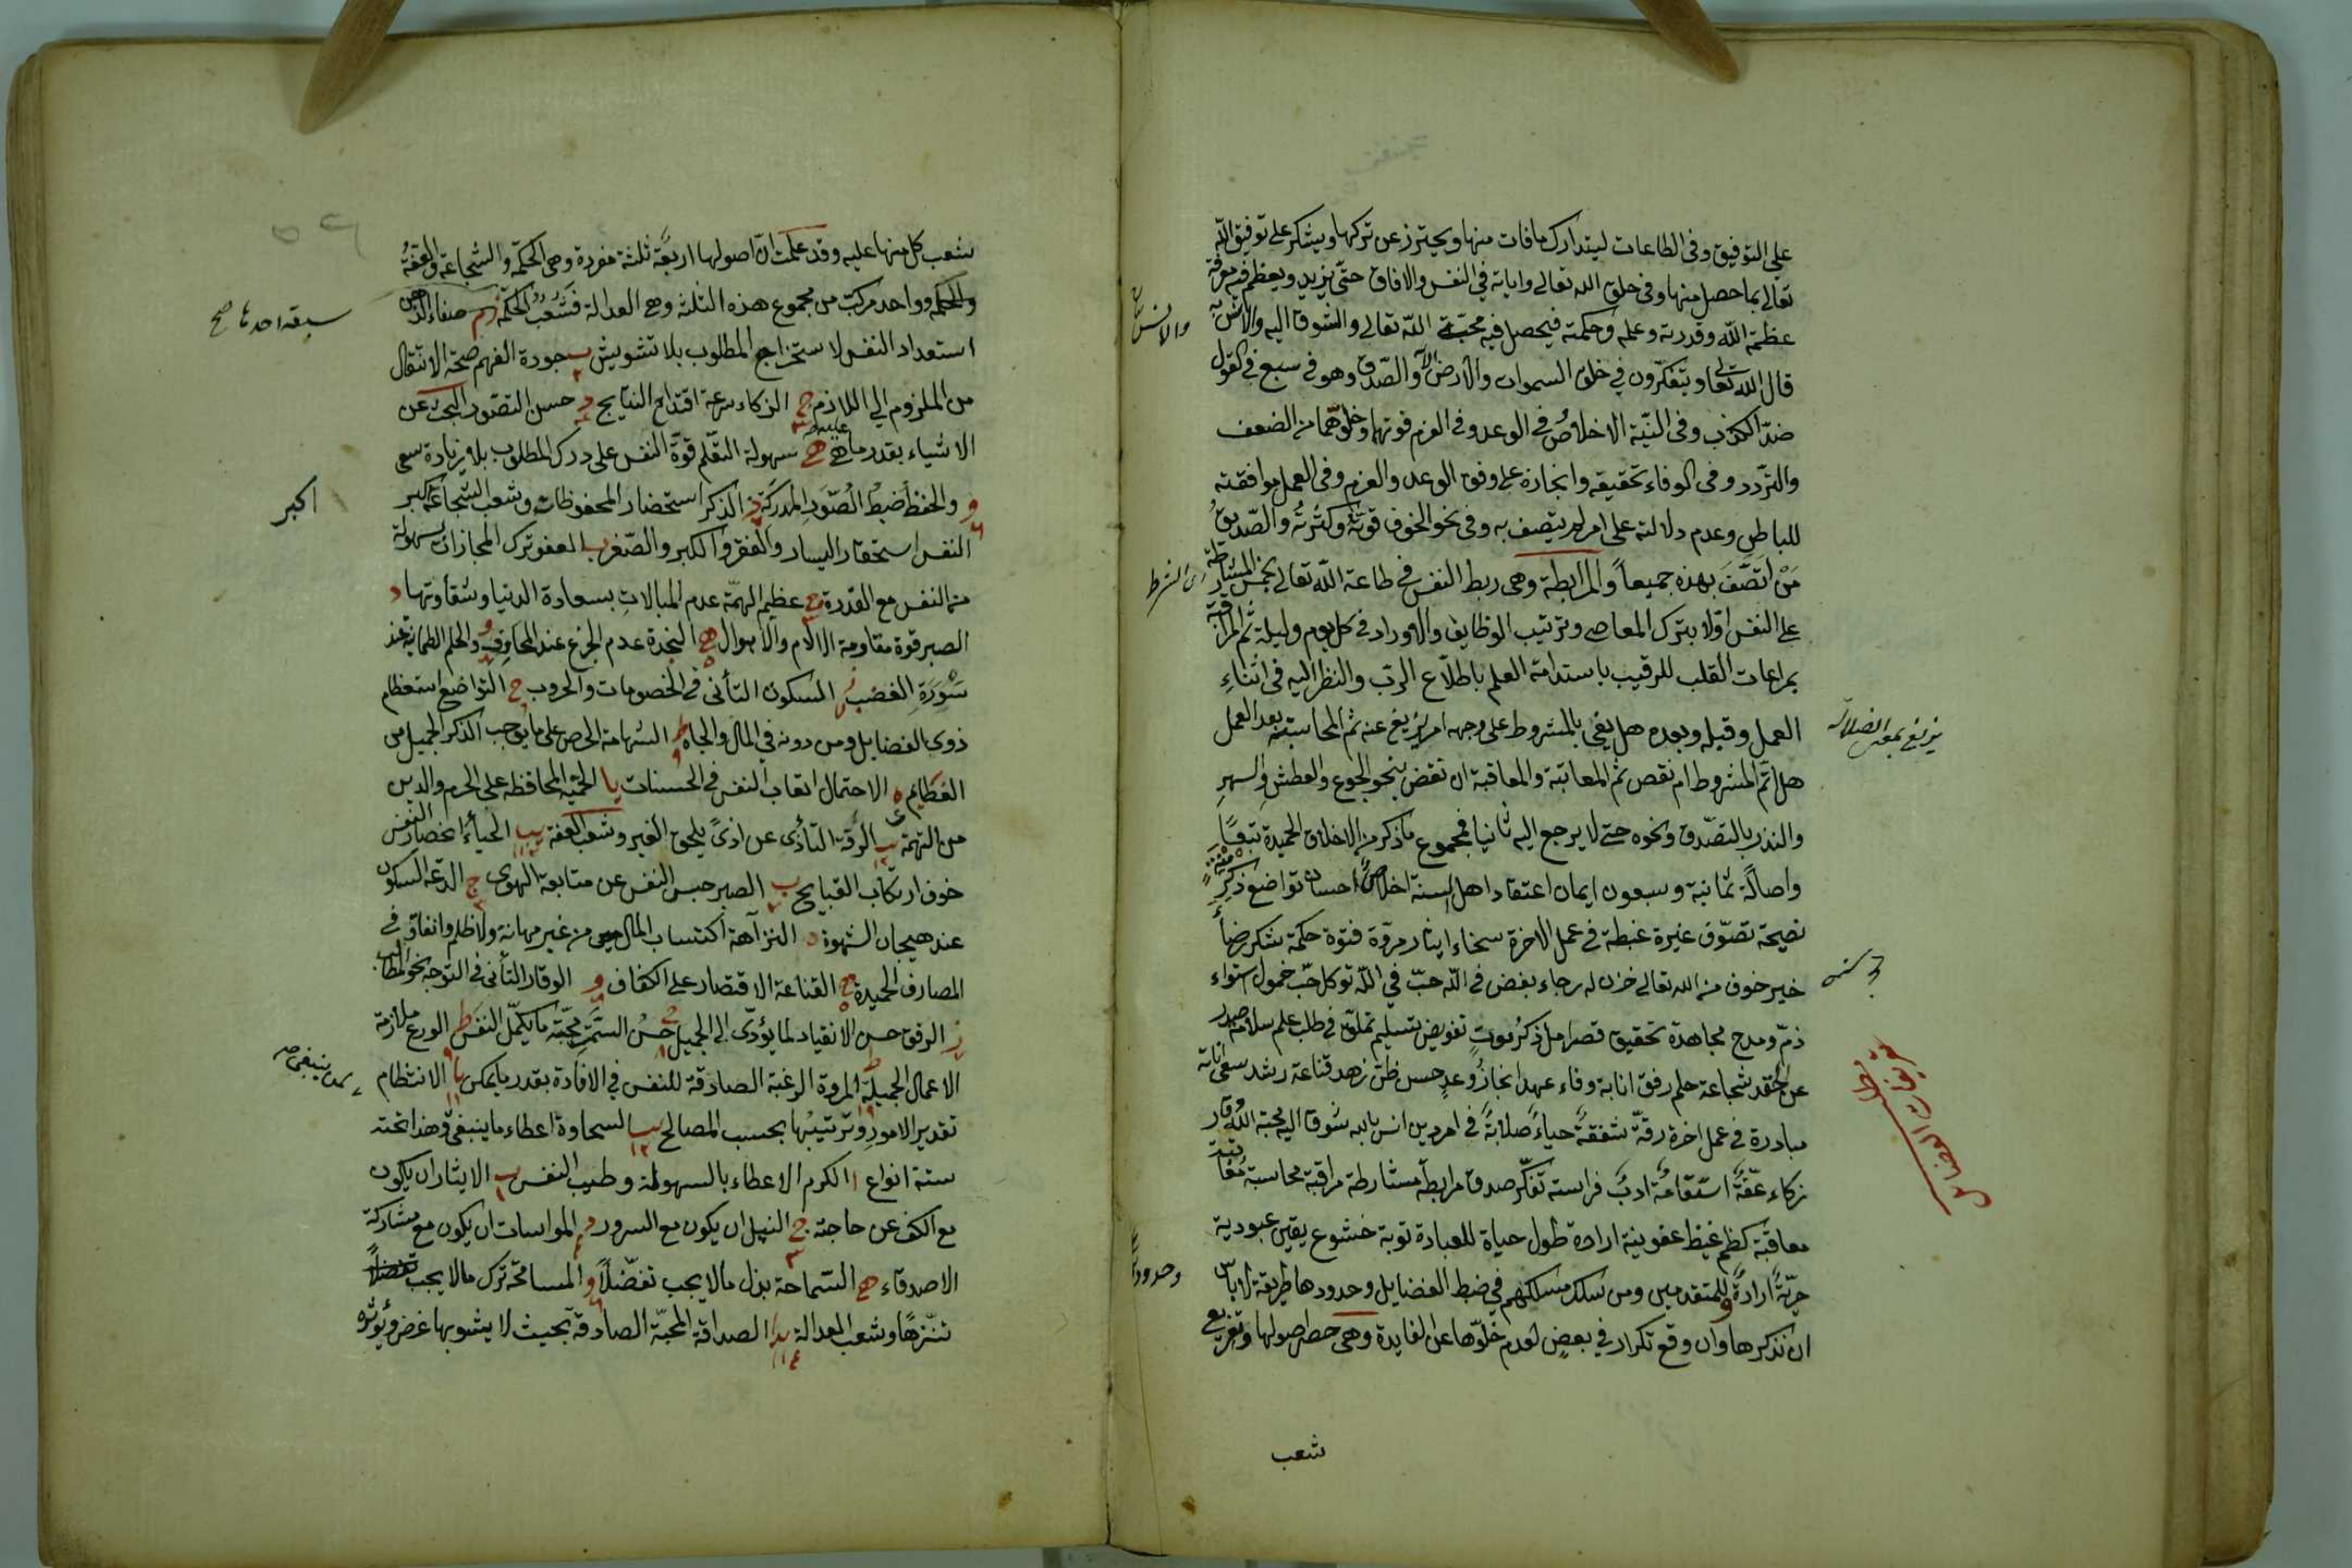 على التوفيق وفى الطاعات ليتدارك مافات منها ويحترز عن تركها ويشكر على توفيق الله
تعالى بما حصل منها وفى خلق الله تعالى واياته في النفس والافاق حتى يزيد ويعظم فيه معرفة
عظمة الله وقدرته وعلمه وحكمته فيحصل فيه محبة الله تعالى والشوق اليه والانس به
قال الله تعالى ويتفكرون في خلق السموات والارض الآية والصدق وهو في سبع في القول
ضد الكذب وفى النية الاخلاص وفى الوعد وفى العزم قوتهما وخلوهما من الضعف
والتردد وفى الوفاء تحقيقه وانجازه على وفق الوعد والعزم وفى العمل موافقته
للباطن وعدم دلالته على امر لم يتصف به وفى نحو الخوف قوته وكثرته والصديق
من اتصف بهذه جميعاً والمرابطة وهى ربط النفس في طاعة الله تعالى بخمس المشارطة
على النفس اولا بترك المعاصى وترتيب الوظايف والاوراد في كل يوم وليلة ثم المراقبة
بمراعات القلب للرقيب باستدامة العلم باطلاع الرب والنظر اليه فى اثناء
العمل وقبله وبعده هل يفى بالمشروط على وجهه ام يزيغ عنه ثم المحاسبة بعد العمل
هل اتم المشروط ام نقص ثم المعاتبة والمعاقبة ان نقض بنحو الجوع والعطش والسهر
والنذر بالتصدق ونحوه حتى لا يرجع اليه ثانيا فمجموع ما ذكر من الاخلاق الحميدة تبعًا
واصالةً ثمانية وسبعون ايمان اعتقاد اهل السنة اخلاص احسان تواضع ذكر منة
نصيحة تصوف غيرة غبطة في عمل الاخرة سخاء ايثار مروة فتوة حكمة شكر رضاً
خير خوف من الله تعالى حزن له رجاء بغض في الله حب في الله توكل حب خمول استواء
ذم ومدح مجاهدة تحقيق قصر امل ذكر موت تفويض تسليم تملق في طلب علم سلامة صدر
عن الحقد شجاعة حلم رفق انابة وفاء عهد انجاز وعد حسن ظن زهد قناعة رشد سعى اناة
مبادرة في عمل اخرة رقة شفقة حياء صلابة في امر دين انس بالله شوق اليه محبة الله وقار
زكاء عفة استقامة ادب فراسة تفكر صدق مرابطة مشارطة مراقبة محاسبة معاتبة
معاقبة كظم غيظ عفو نية ارادة طول حياة للعبادة توبة خشوع يقين عبودية
حرية ارادة وللمتقدمين ومن سلك مسلكهم في ضبط الفضايل وحدودها طريقة لا بأس
ان نذكرها وان وقع تكرار في بعض لعدم خلوها عن الفايدة وهى حصر اصولها وتفريع
شعب
والانس به
اى الشرط
يزيغ بمعنى الضلالة
وحدودها
تعريفات الفضائل
شعب كل منها عليه وقد علمت ان اصولها اربعة ثلثة مفردة وهى الحكمة والشجاعة والعفة
والحكمة وواحد مركب من مجموع هذه الثلثة وهى العدالة فشعب الحكمة صفاء الذهن
استعداد النفس لاستخراج المطلوب بلا تشويش ب جودة الفهم صحة الانتقال
من الملزوم الى اللازم ج الذكاء سرعة اقتداح النتايج د حسن التصور البحث عن
الاشياء بقدر ما هى عليه ه سهولة التعلم قوة النفس على درك المطلوب بلا زيادة سعى
و والحفظ ضبط الصور المدركة ز الذكر استحضار المحفوظات وشعب الشجاعة كبر
النفس استحقار اليسار والفقر والكبر والصغر ب العفو ترك المجازات بسهولة
من النفس مع القدرة ج عظيم الهمة عدم المبالات بسعادة الدنيا وشقاوتها د
الصبر قوة مقاومة الالام والاهوال ه النجدة عدم الجزع عند المخاوف و والحلم الطمانية عند
سورة الغضب ز السكون التأنى في الخصومات والحروب ح التواضع استعظام
ذوى الفضايل ومن دونه في المال والجاه ط الشهامة الحرص على ما يوجب الذكر الجميل من
العظايم ى الاحتمال اتعاب النفس في الحسنات يا الحمية المحافظة على الحرم والدين
من التهمة يب الرقة التأذى عن اذى يلحق الغير وشعب العفة الحياء انحصار النفس
خوف ارتكاب القبايح ب الصبر حبس النفس عن متابعة الهوى ج الدعة السكون
عند هيجان الشهوة د النزاهة اكتساب المال من غير مهانة ولا ظلم وانفاق في
المصارف الحميدة ه القناعة الاقتصار على الكفاف و الوقار التأنى في التوجه نحو المطالب
ز الرفق حسن الانقياد لما يؤدى الى الجميل ح حسن السمت محبة ما يكمل النفس ط الورع ملازمة
الاعمال الجميلة ى المروة الرغبة الصادقة للنفس في الافادة بقدر ما يمكن يا الانتظام
تقدير الامور وترتيبها بحسب المصالح يب السخاوة اعطاء ما ينبغى وهذا تحته
ستة انواع ا الكرم الاعطاء بالسهولة وطيب النفس ب الايثار ان يكون
مع الكف عن حاجته ج النيل ان يكون مع السرور د المواسات ان يكون مع مشاركة
الاصدقاء ه السماحة بذل مالا يجب تفضلًا و المسامحة ترك مالا يجب
تنزهًا وشعب العدالة يد ا الصداقة المحبة الصادقة بحيث لا يشوبها غرض ويؤثره
اكبر
لمن ينبغى صح